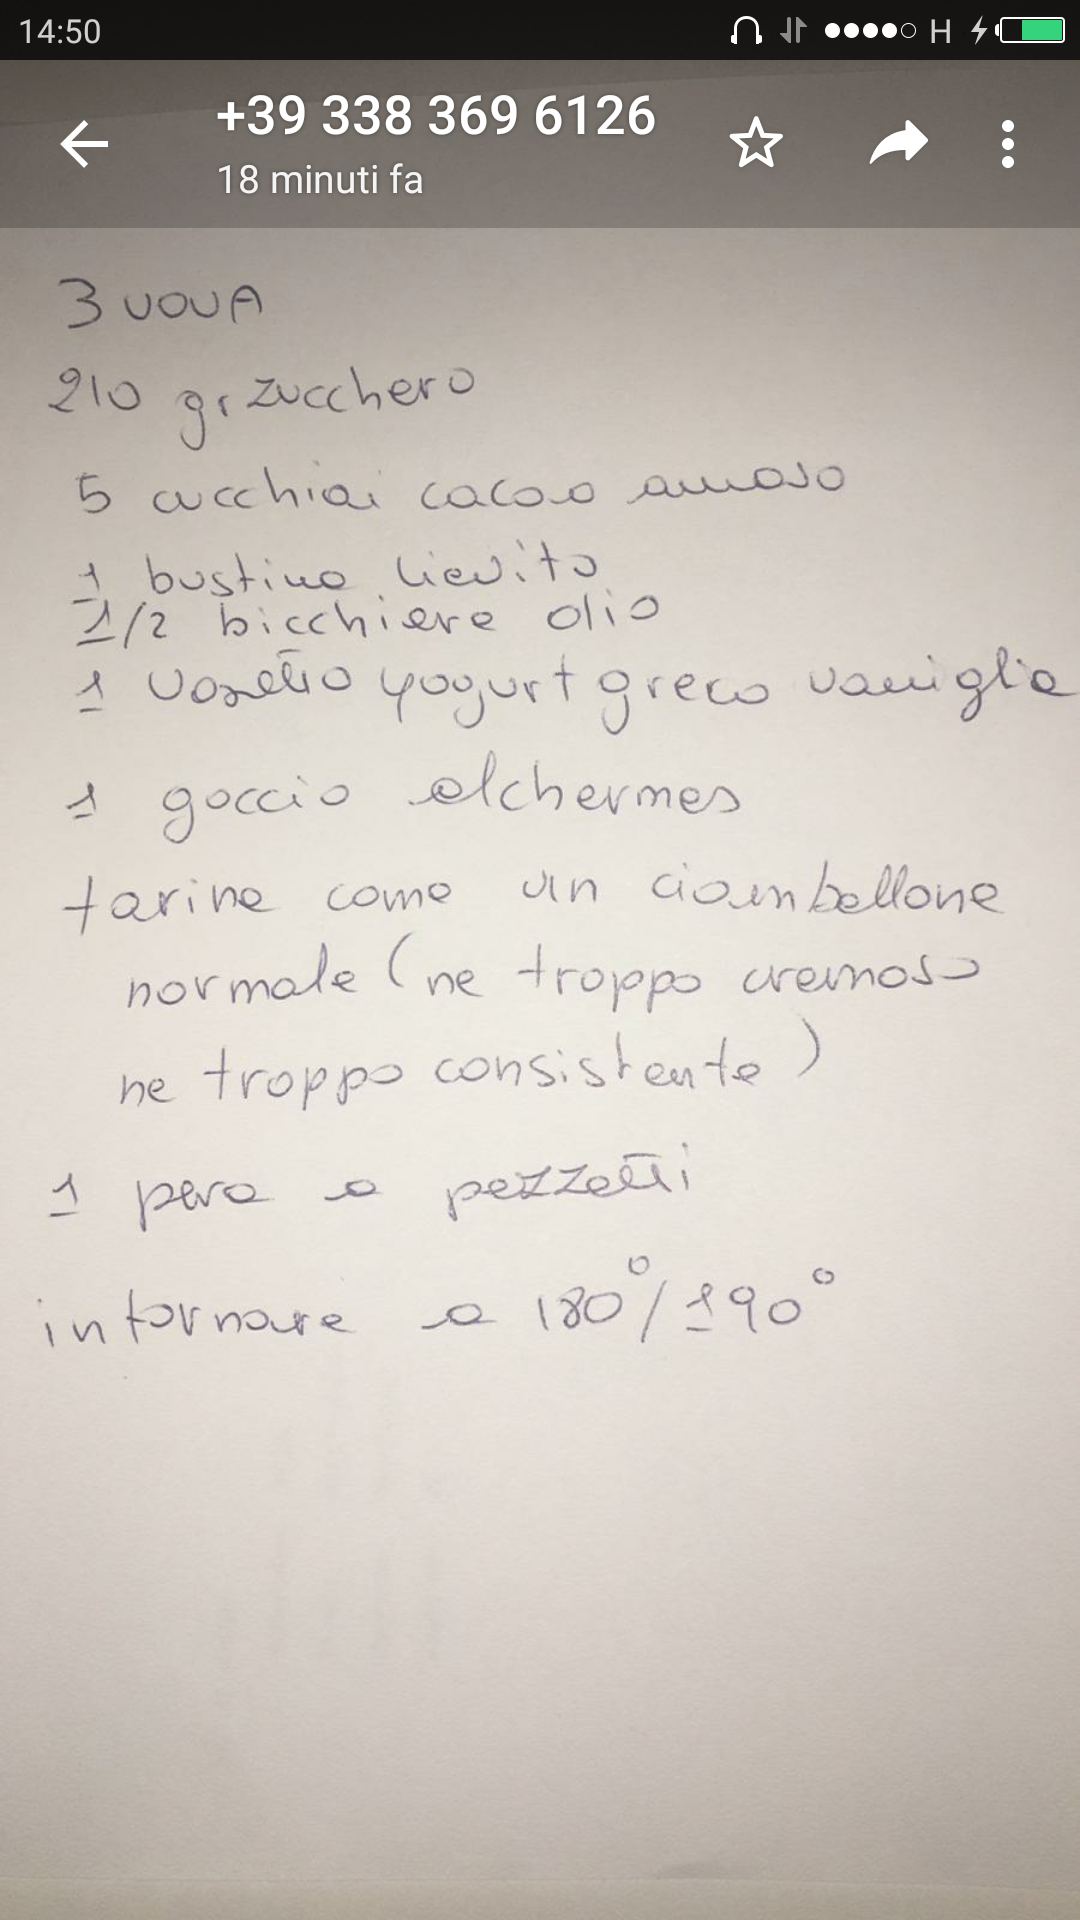 14:50
H
+39 338 369 6126
18 minuti fa
3 UOVA
210 gr zucchero
5 cucchiai cacao amaro
1 bustina lievito
1/2 bicchiere olio
1 vasetto yogurt greco vaniglia
1 goccio alchermes
farina come un ciambellone
normale (ne troppo cremoso
ne troppo consistente)
1 pera a pezzetti
infornare a 180°/190°